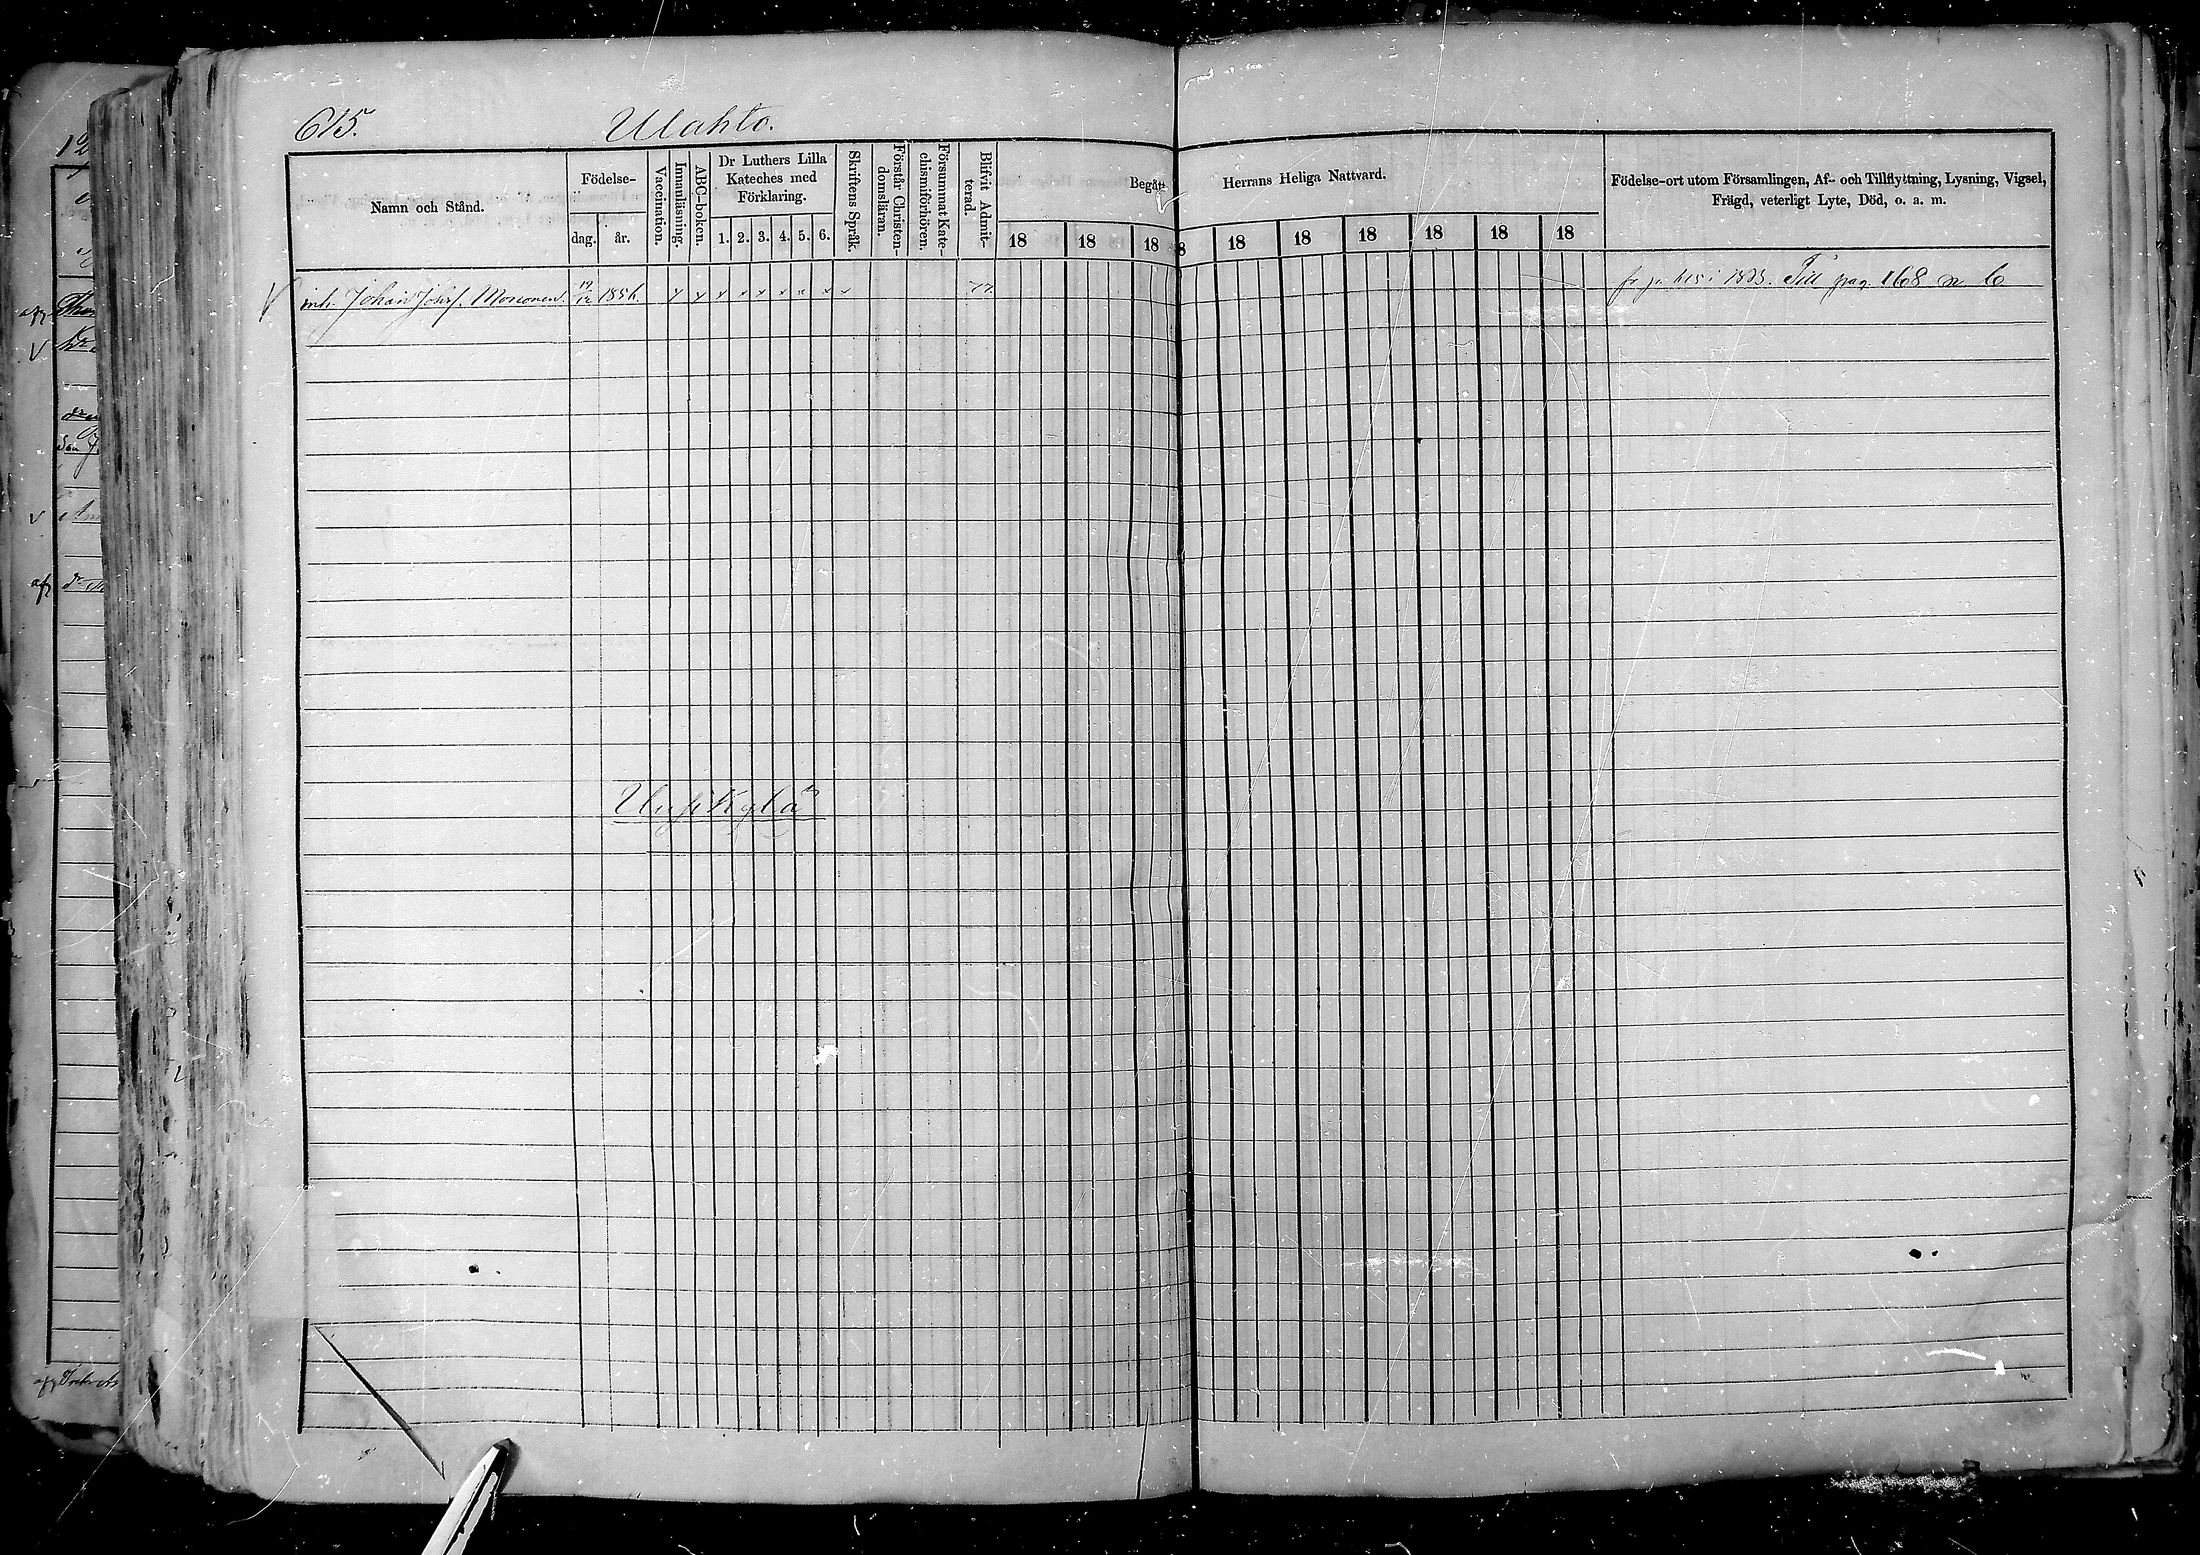 615.
Ulahto.
Namn och Stånd.
Födelse-
dag. år.
Vaccination.
Innanläsning.
ABC-boken.
Dr Luthers Lilla
Kateches med
Förklaring.
1. 2. 3. 4. 5. 6.
Skriftens Språk.
Förstår Christen-
domsläran.
Försummat Kate-
chismiförhören.
Blifvit Admit-
terad.
Begått Herrans Heliga Nattvard.
18 18 18 8 18 18 18 18 18 18
Födelse-ort utom Församlingen, Af- och Tillflyttning, Lysning, Vigsel,
Frägd, veterligt Lyte, Död, o. a. m.
V inh. Johan Johss. Mononen. 19/12 1856. x x x x x x x x x 77 Till pag 168 n 6
Uusi Kylä